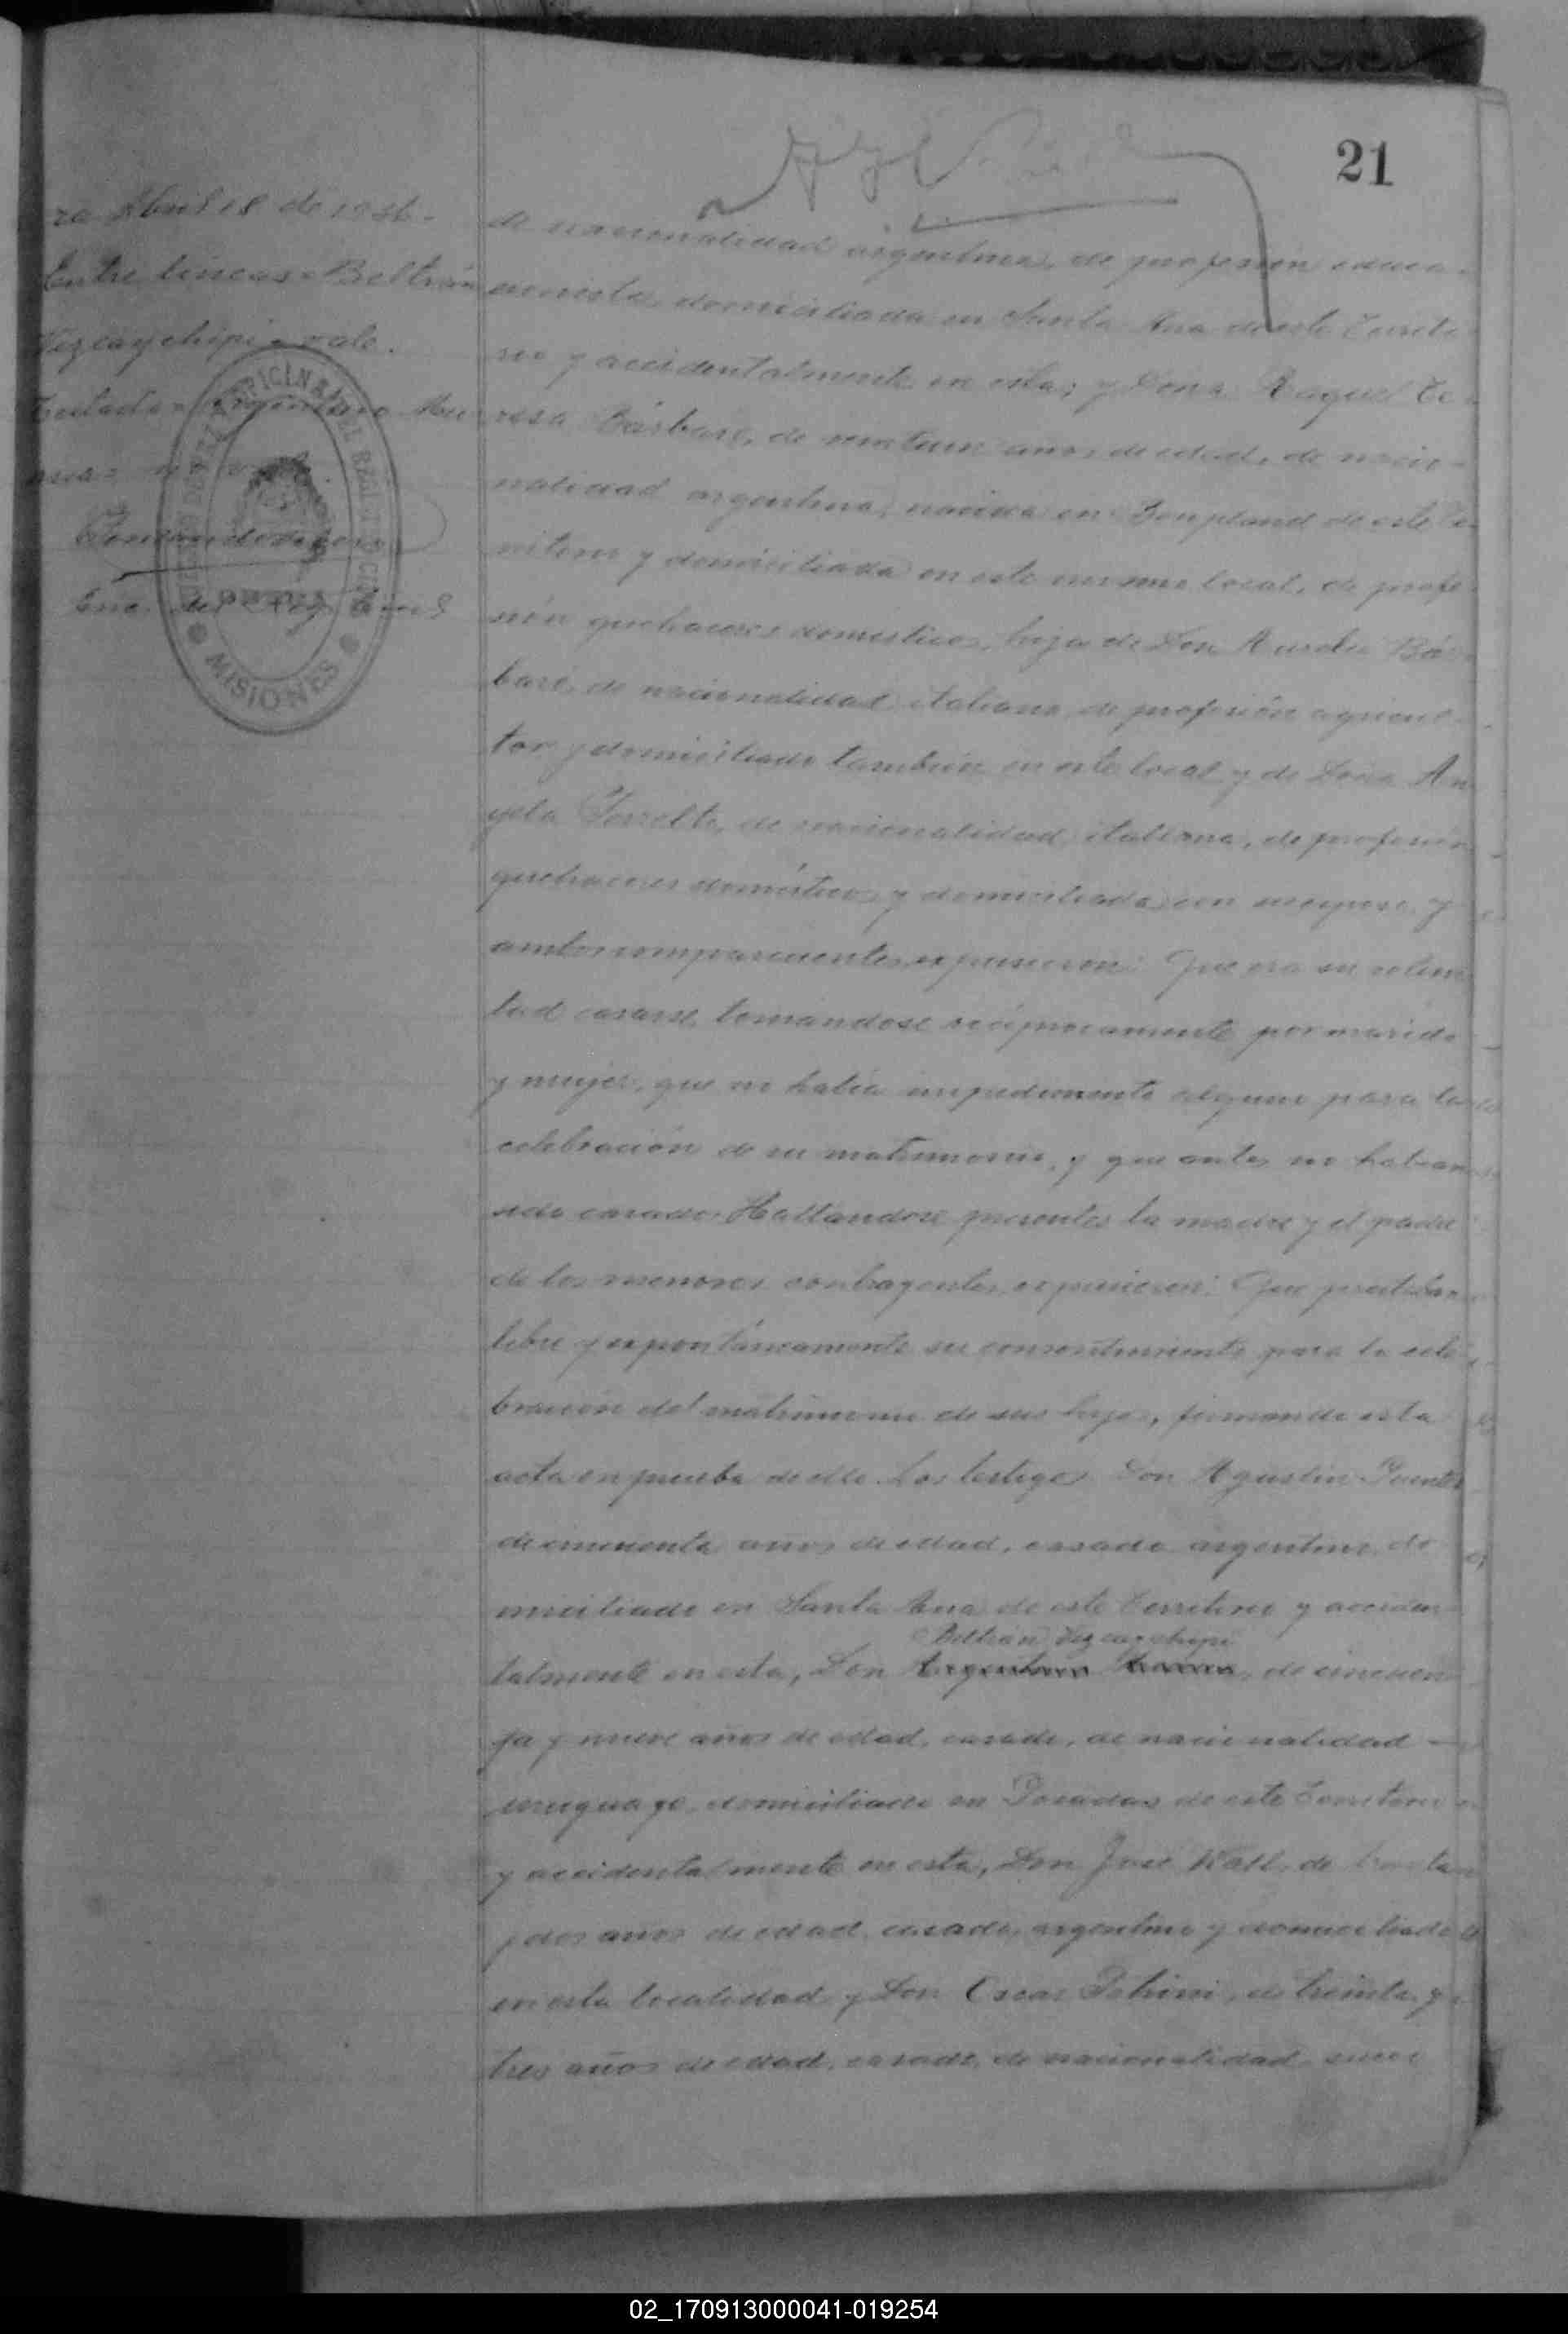 21
ra Abril 18 de 1936.-
Entre líneas = Beltrán
Vizcaychipi = vale.
Testado = Argentino
no vale.
Enc. del Reg. Civil
MISIONES
de nacionalidad argentina, de profesión educa-
cionista, domiciliada en Santa Ana de este Territo-
rio y accidentalmente en esta; y Doña Raquel Te-
resa Bárbaro, de veintiun años de edad, de nacio-
nalidad argentina, nacida en Bonpland de este Te-
rritorio y domiciliada en este mismo local, de profe-
sión quehaceres domésticos, hija de Don Aurelio Bár-
baro, de nacionalidad italiana, de profesión agricul-
tor y domiciliado también en este local y de Doña An
gela de nacionalidad italiana, de profesión
quehaceres domésticos y domiciliada con su esposo, y
ambos comparecientes expusieron: Que era su volun
tad casarse, tomandose recíprocamente por marido
y mujer, que no había impedimento alguno para la
celebración de su matrimonio, y que antes no habían
sido casados. Hallandose presentes la madre y el padre
de los menores contrayentes, expusieron: Que prestaban
libre y expontáneamente su consentimiento para la cele-
bración del matrimonio de sus hijos, firmando esta
acta en prueba de ello. Los testigos Don Agustín Puentes
de cincuenta años de edad, casado argentino, do
miciliado en Santa Ana de este Territorio y acciden-
Beltrán Vizcaychipi
talmente en esta, Don Argentino de cincuen-
ta y nueve años de edad, casado, de nacionalidad —
uruguayo, domiciliado en Posadas de este Territorio
y accidentalmente en esta, Don José de treinta
y dos años de edad, casado, argentino y domiciliado
en esta localidad y Don Oscar de treinta y
tres años de edad, casado, de nacionalidad suizo
02_170913000041-019254